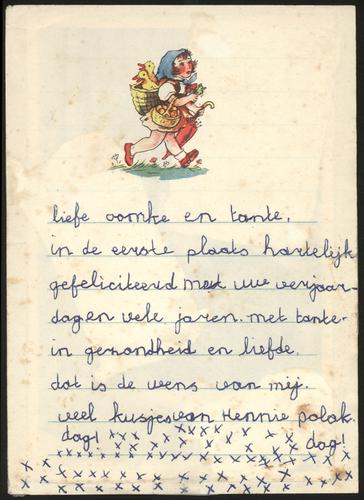 liefe oomke en tante,
in de eerste plaats hartelijk
gefeliciteerd met uw verjaar-
dag en vele jaren. met tante-
in gezondheid en liefde,
dat is de wens van mij.
veel kusjes van Hennie polak.
dag! xxx xxxxx x x
x x x x x x x dag!
xxxxxxxxxxxxxxxxxx
x x x x x x x x x x x x x
x x x x x x x x x x x x x